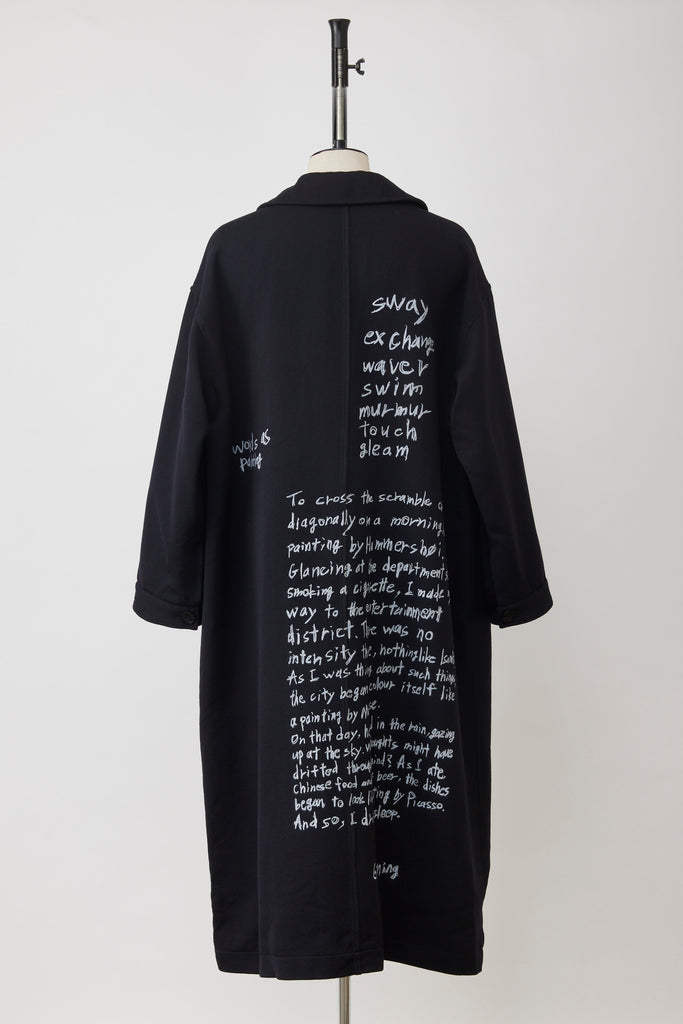 sway
exchange
waver
swim
murmur
touch
gleam
words as
painting
To cross the scramble
diagonally on a morning
painting by Hammershøi.
Glancing at the department
smoking a cigarette, I made
way to the entertainment
district. There was no
intensity, nothing like
As I was about such things
the city began colour itself like
a painting by
On that day, in the rain, gazing
up at the sky. might have
drifted As I ate
chinese food and beer, the dishes
began to look by Picasso.
And so, I sleep.